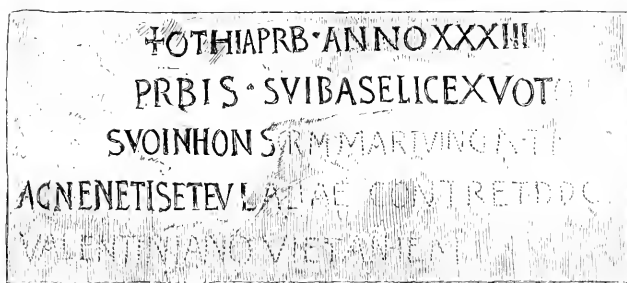 ✝OTHIAPRB·ANNOXXXIII
PRBIS·SVIBASELICEXVOTO
SVOINHONSCRMMARTVINCNTI
AGNENETISETEVLALIAE CONTRETDDC
VALENTINIANO VIETANTHEMI